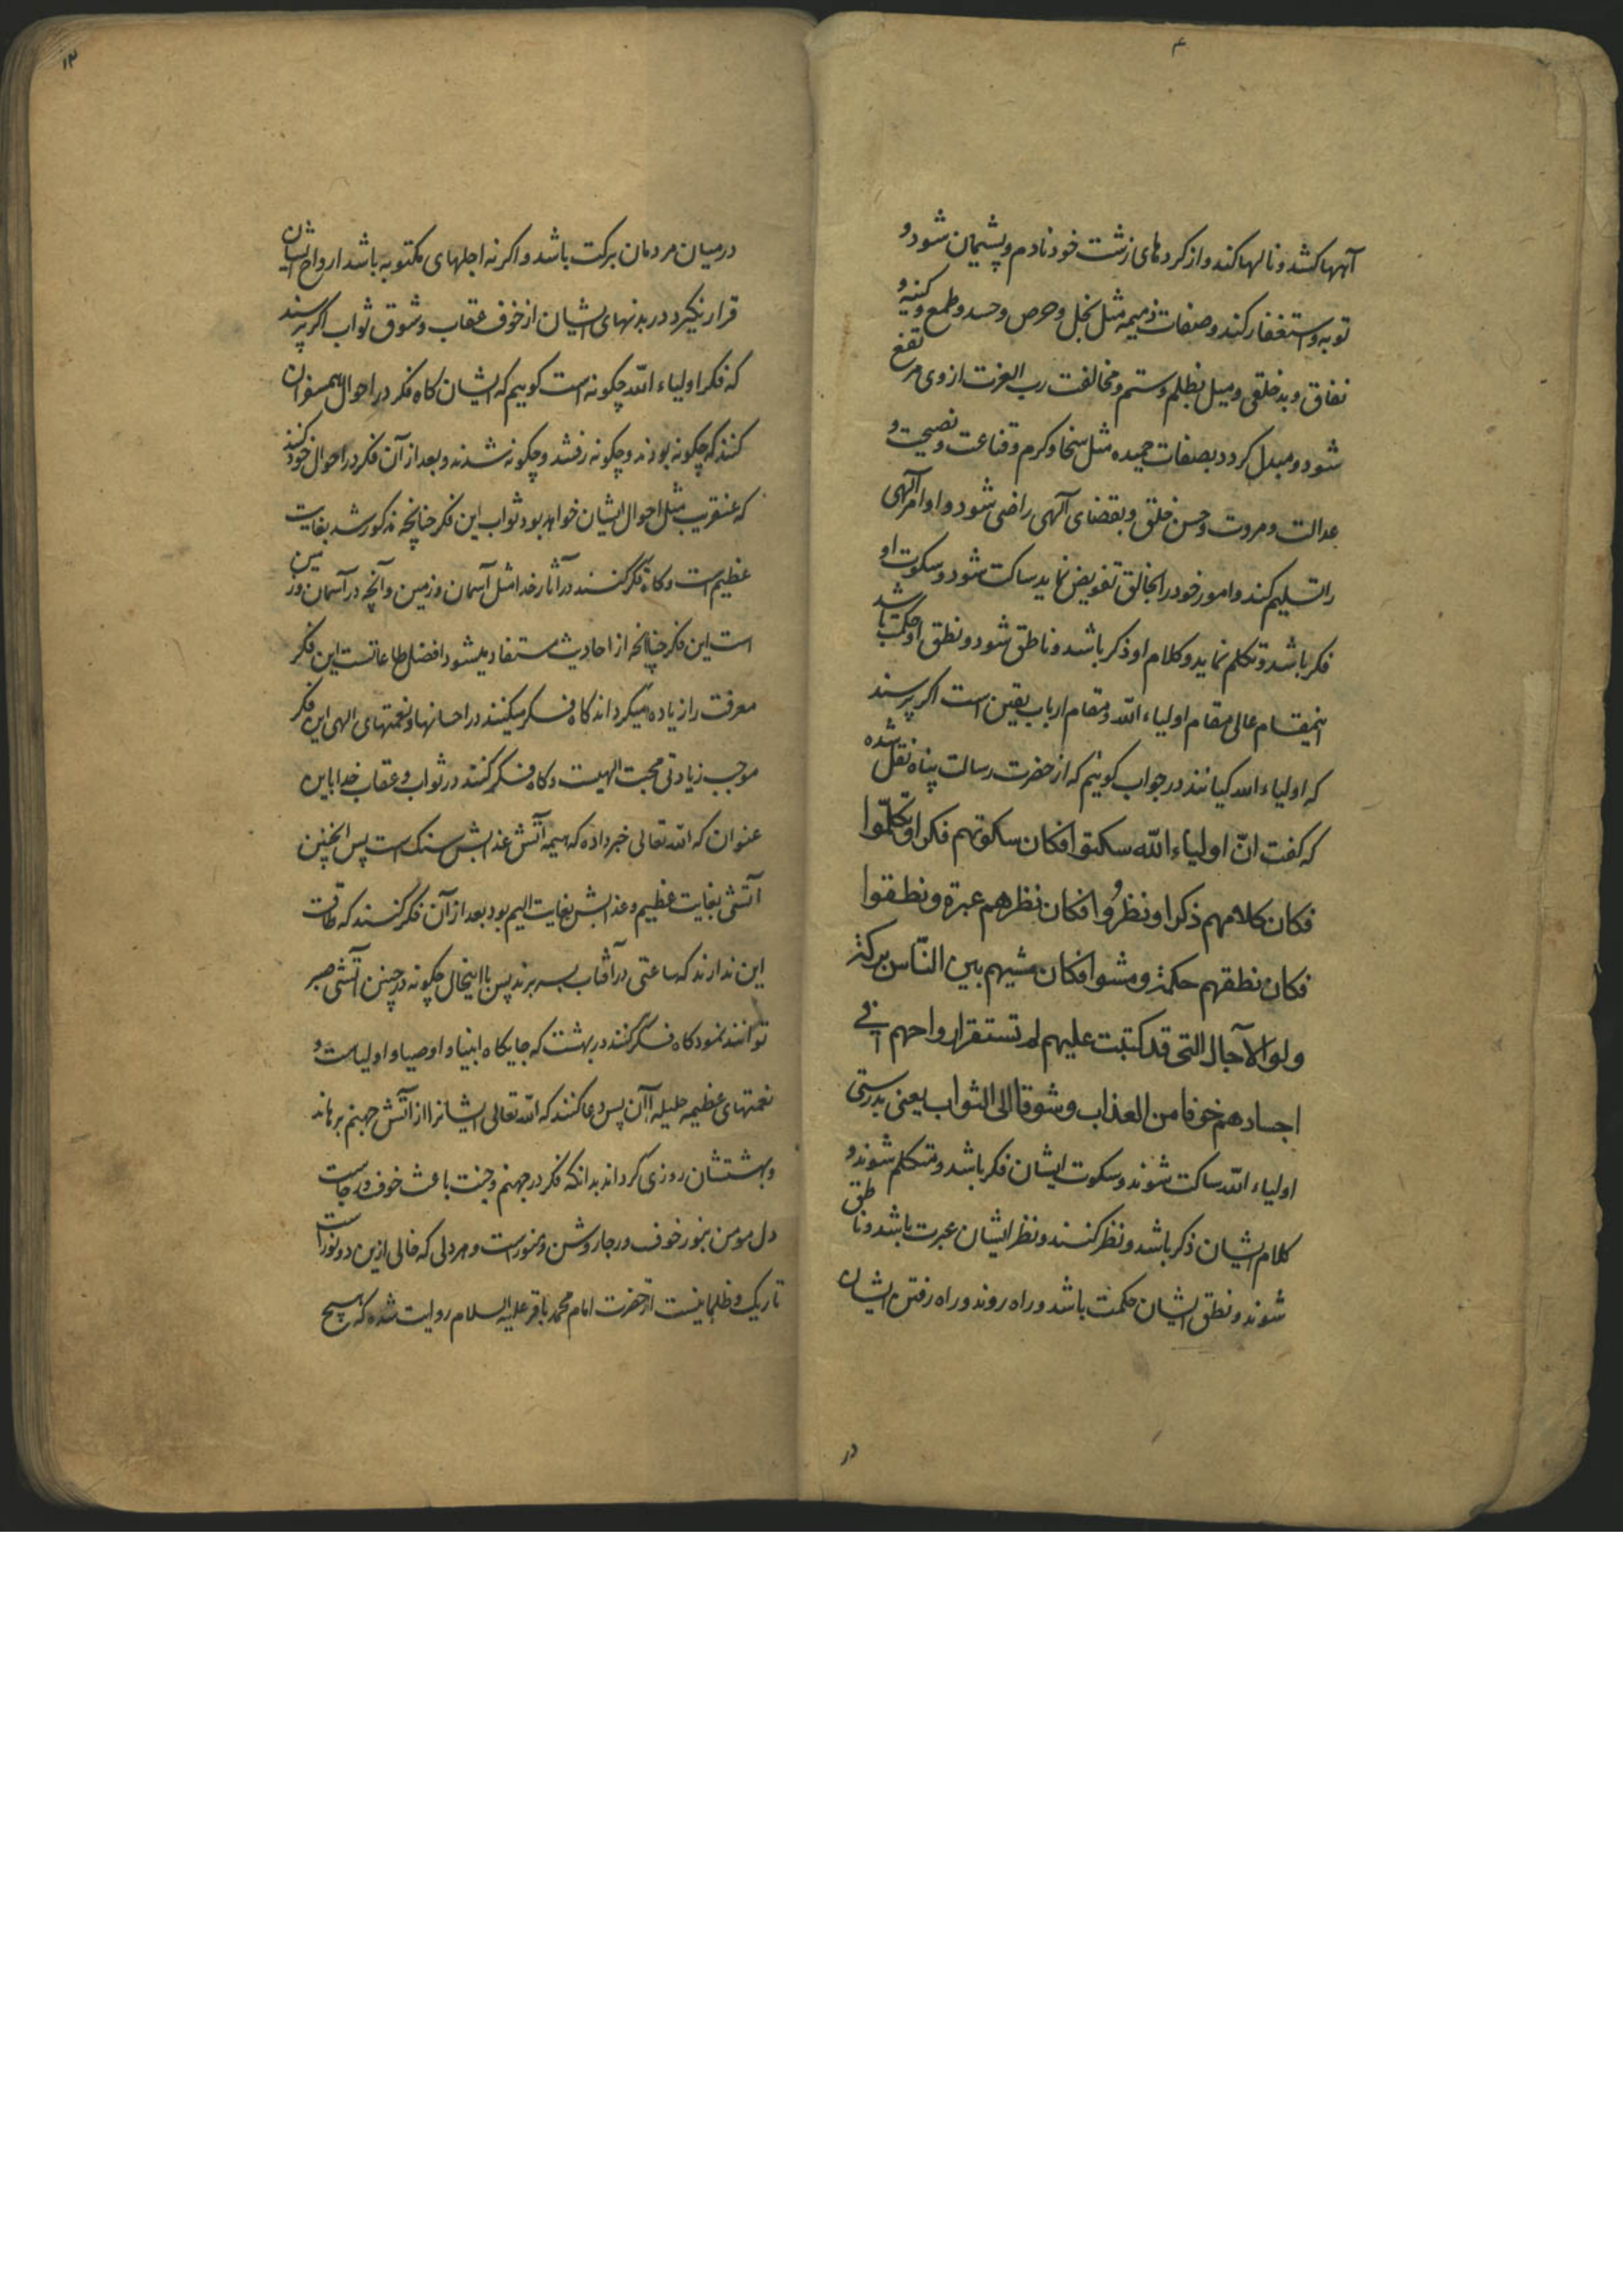 آهها کشد و نالها کند و از کردهای زشت خود نادم و پشیمان شود و
توبه و استغفار کند و صفات ذمیمه مثل بخل و حرص و حسد و طمع و کینه و
نفاق و بدخلقی و میل بظلم و ستم و مخالفت رب العزت از وی مرتفع
شود و مبدل کردد بصفات حمیده مثل سخا و کرم و قناعت و نصیحت و
عدالت و مروت و حسن خلق و بقضای آلهی راضی شود و اوامر آلهی
را تسلیم کند و امور خود را بخالق تفویض نماید ساکت شود و سکوت او
فکر باشد و تکلم نماید و کلام او ذکر باشد و ناطق شود و نطق او حکمت باشد
اینمقام عالی مقام اولیاء الله و مقام ارباب یقین است اکر پرسند
که اولیاء الله کیانند در جواب کوئیم که از حضرت رسالت پناه نقل شده
که کفت انّ اولیاء الله سکتوا فکان سکوتهم فکرا و تکلّموا
فکان کلامهم ذکرا و نظرُوا فکان نظرهم عبرة و نطقوا
فکان نطقهم حکمة و مشوا فکان مشیهم بین النّاس برکة
و لولا الآجال التی قد کتبت علیهم لم تستقر ارواحهم فی
اجسادهم خوفا من العذاب و شوقا الی الثواب یعنی بدرستی
اولیاء الله ساکت شوند و سکوت ایشان فکر باشد و متکلم شوند و
کلام ایشان ذکر باشد و نظر کنند و نظر ایشان عبرت باشد و ناطق
شوند و نطق ایشان حکمت باشد و راه روند و راه رفتن ایشان
در
۱۳
در میان مردمان برکت باشد و اکر نه اجلهای مکتوبه باشد ارواح ایشان
قرار نکیرد در بدنهای ایشان از خوف عقاب و شوق ثواب اکر پرسند
که فکر اولیاء الله چکونه است کوییم که ایشان کاه فکر در احوال همسفران
کنند که چکونه بودند و چکونه رفتند و چکونه شدند و بعد از آن فکر در احوال خود کنند
که عنقریب مثل احوال ایشان خواهد بود ثواب این فکر چنانچه مذکور شد بغایت
عظیم است و کاه فکر کنند در آثار خدا مثل آسمان و زمین و آنچه در آسمان و زمین
است این فکر چنانچه از احادیث مستفاد میشود افضل طاعاتست این فکر
معرفت را زیاده میکرداند کاه فکر میکنند در احسانها و نعمتهای الهی این فکر
موجب زیادتی محبت الهیست و کاه فکر کنند در ثواب و عقاب خدا باین
عنوان که الله تعالی خبر داده که هیمه آتش عذابش سنک است پس اینچنین
آتشی بغایت عظیم و عذابش بغایت الیم بود بعد از آن فکر کنند که طاقت
این ندارند که ساعتی در آفتاب بسر برند پس با اینحال چکونه در چنین آتشی صبر
توانند نمود کاه فکر کنند در بهشت که جایکاه انبیا و اوصیا و اولیاست و
نعمتهای عظیمه جلیله آن پس دعا کنند که الله تعالی ایشانرا از آتش جهنم برهاند
و بهشتشان روزی کرداند بدانکه فکر در جهنم و جنت باعث خوف و رجاست
دل مومن بنور خوف و رجا روشن و منورست و هر دلی که خالی ازین دو نور است
تاریک و ظلمانیست از حضرت امام محمد باقر علیه السلام روایت شده که هیچ